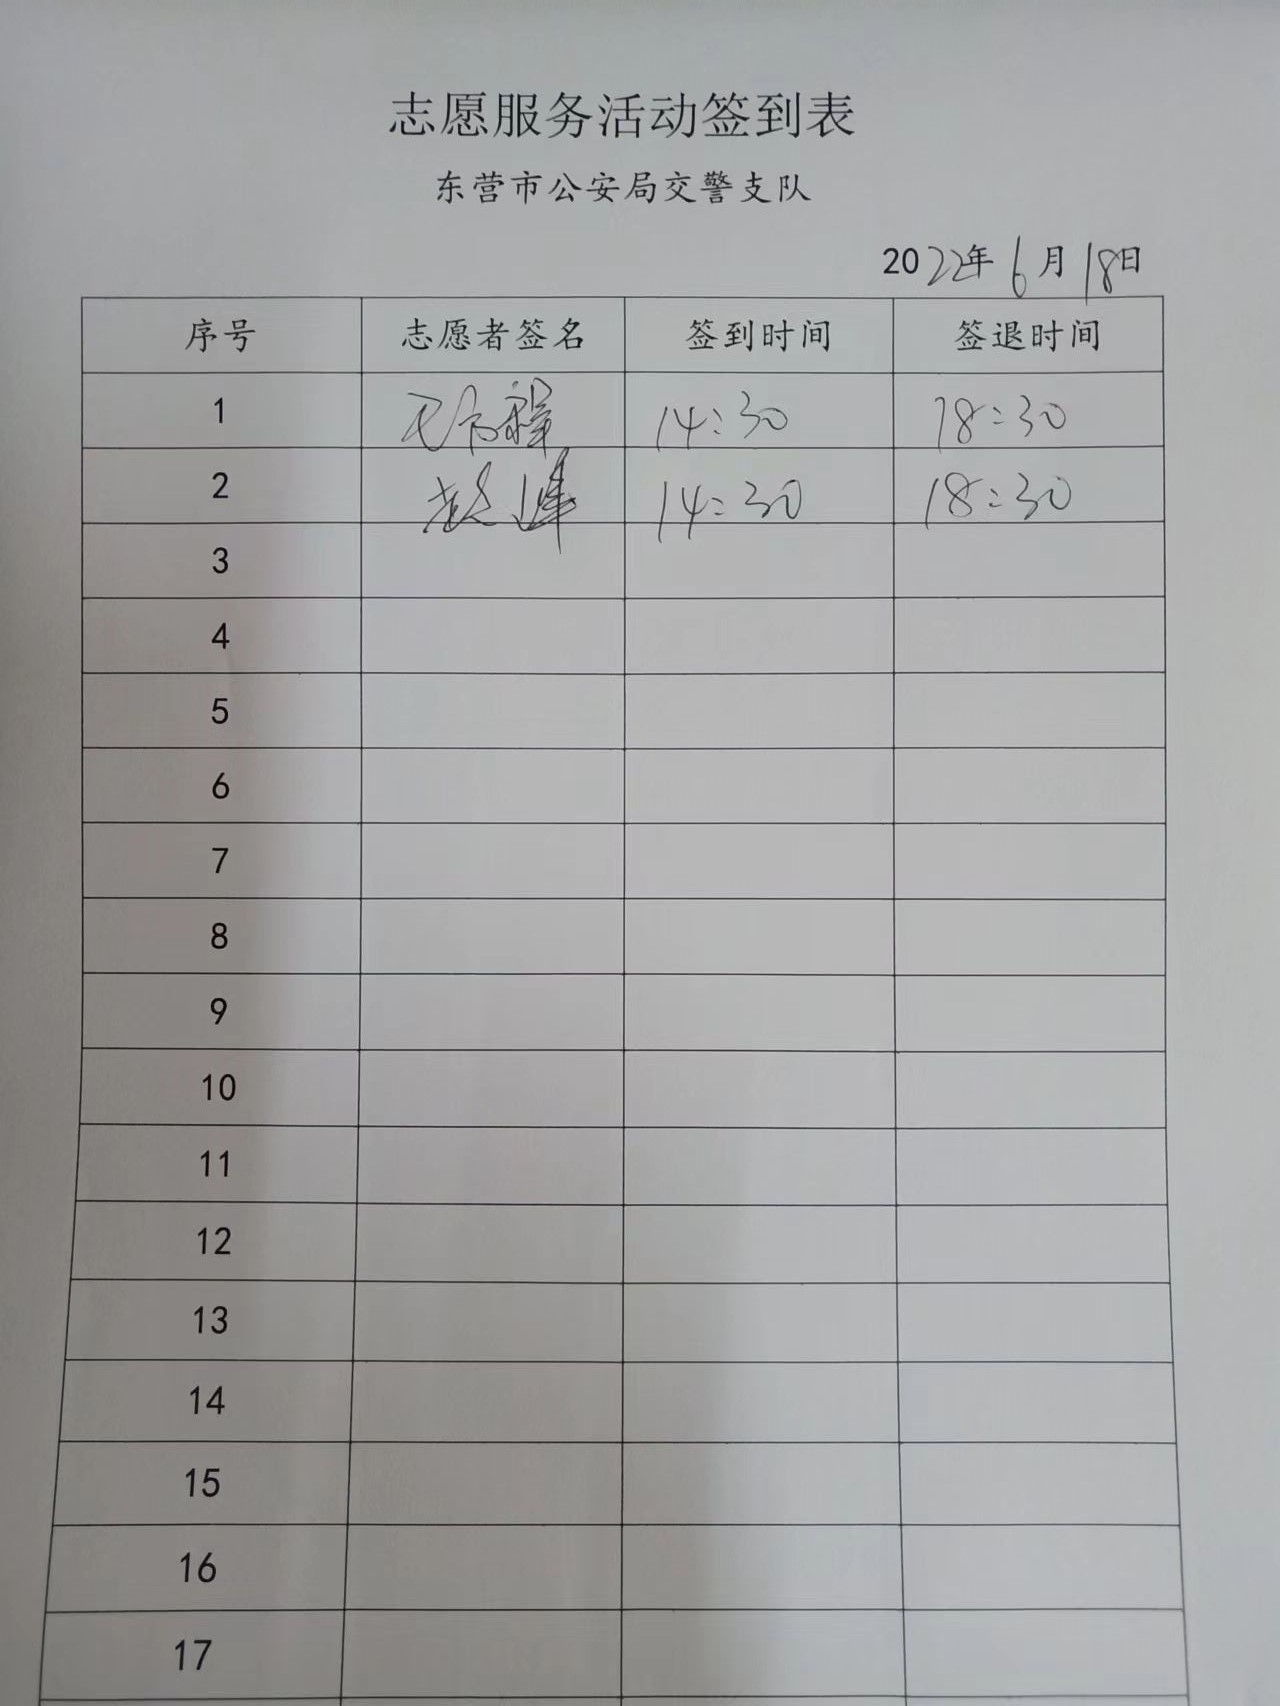 志愿服务活动签到表
东营市公安局交警支队
2022年6月18日
序号 志愿者签名 签到时间 签退时间
1 14:30 18:30
2 14:30 18:30
3
4
5
6
7
8
9
10
11
12
13
14
15
16
17